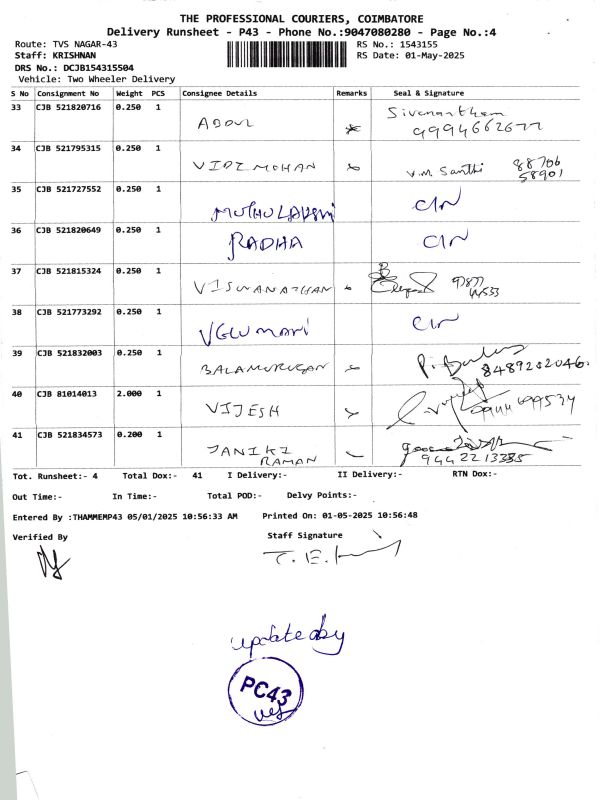 THE PROFESSIONAL COURIERS, COIMBATORE
Delivery Runsheet - P43 - Phone No.:9047080280 - Page No.:4
Route: TVS NAGAR-43 RS No.: 1543155
Staff: KRISHNAN RS Date: 01-May-2025
DRS No.: DCJB154315504
Vehicle: Two Wheeler Delivery
S No Consignment No Weight PCS Consignee Details Remarks Seal & Signature
33 CJB 521820716 0.250 1 ABDUL Sivanantham
9994662677
34 CJB 521795315 0.250 1 VIDZ MOHAN V.M. Santhi 88706
58901
35 CJB 521727552 0.250 1 MUTHULAKSMI
36 CJB 521820649 0.250 1 RADHA
37 CJB 521815324 0.250 1 VISWANATHAN
38 CJB 521773292 0.250 1
39 CJB 521832003 0.250 1 BALAMURUGAN 8489202046.
40 CJB 81014013 2.000 1 VIJESH 9944699534
41 CJB 521834573 0.200 1 JANIKI
RAMAN 9442213385
Tot. Runsheet:- 4 Total Dox:- 41 I Delivery:- II Delivery:- RTN Dox:-
Out Time:- In Time:- Total POD:- Delvy Points:-
Entered By :THAMMEMP43 05/01/2025 10:56:33 AM Printed On: 01-05-2025 10:56:48
Verified By Staff Signature
update by
PC43